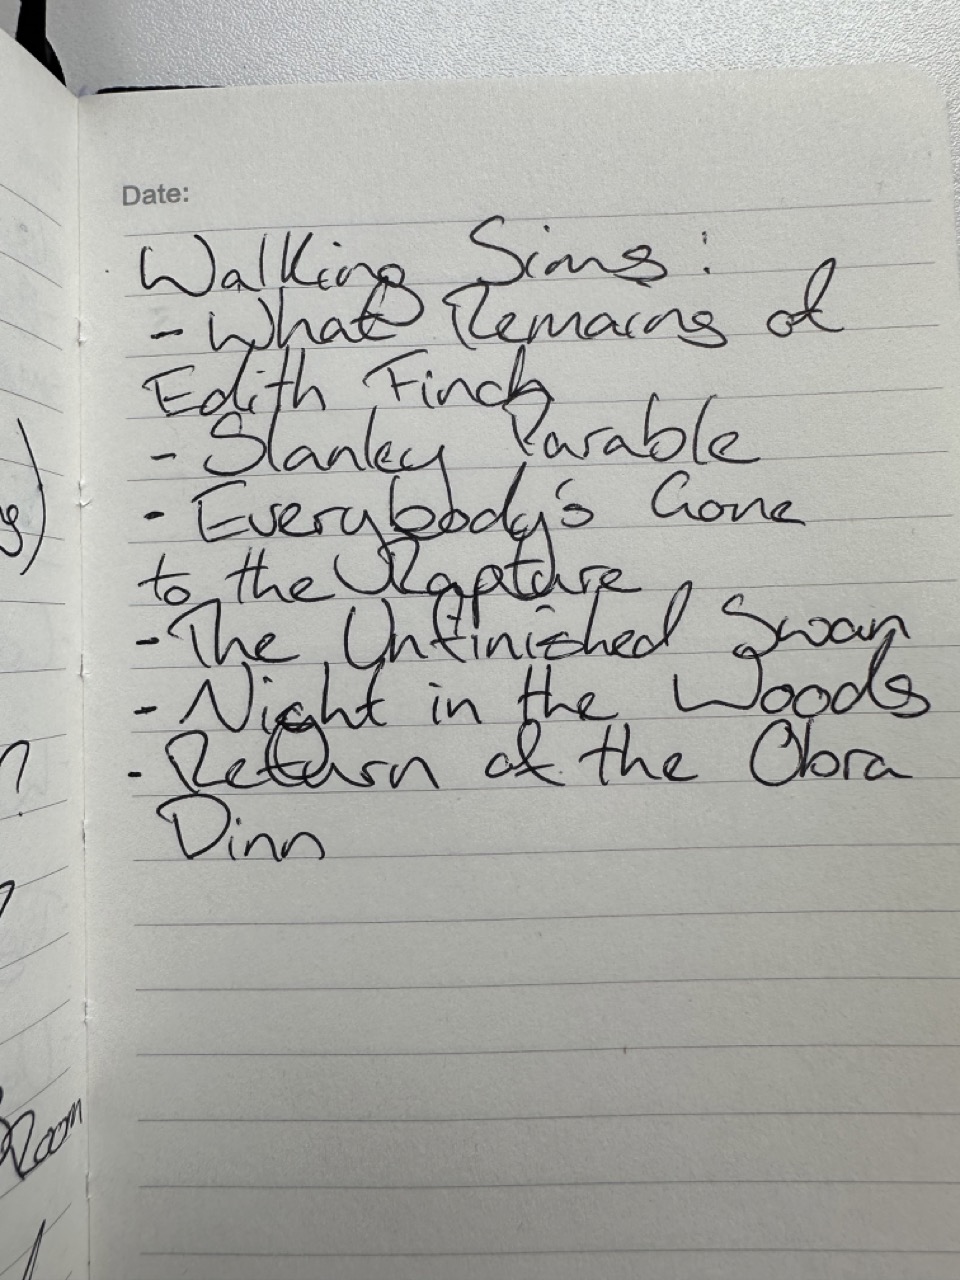 Date:
Walking Sims:
- What Remains of
Edith Finch
- Stanley Parable
- Everybody's Gone
to the Rapture
- The Unfinished Swan
- Night in the Woods
- Return of the Obra
Dinn
Room